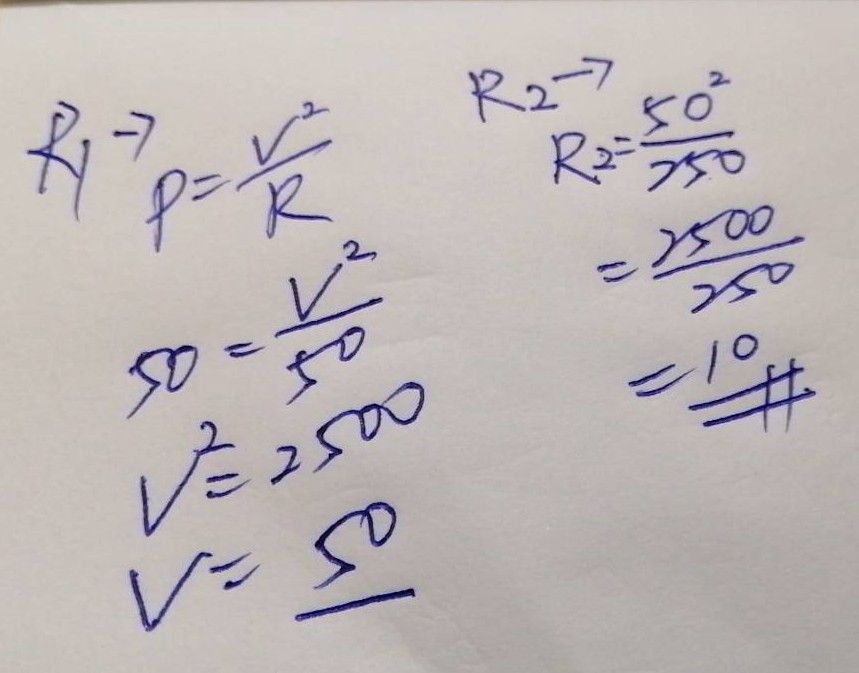 R1 →
P = V²/R
50 = V²/50
V² = 2500
V = 50
R2 →
R2 = 50²/250
= 2500/250
= 10 #